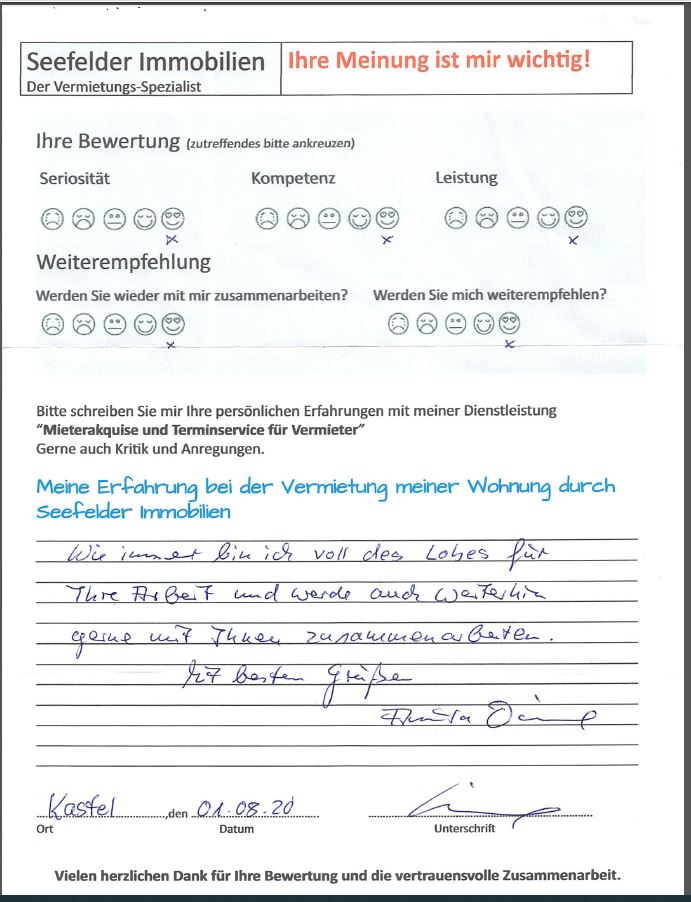 Seefelder Immobilien
Der Vermietungs-Spezialist
Ihre Meinung ist mir wichtig!
Ihre Bewertung (zutreffendes bitte ankreuzen)
Seriosität Kompetenz Leistung
x x x
Weiterempfehlung
Werden Sie wieder mit mir zusammenarbeiten? Werden Sie mich weiterempfehlen?
x x
Bitte schreiben Sie mir Ihre persönlichen Erfahrungen mit meiner Dienstleistung
“Mieterakquise und Terminservice für Vermieter”
Gerne auch Kritik und Anregungen.
Meine Erfahrung bei der Vermietung meiner Wohnung durch
Seefelder Immobilien
Wie immer bin ich voll des Lobes für
Ihre Arbeit und werde auch weiterhin
gerne mit Ihnen zusammenarbeiten.
Mit besten Grüßen
Kastel ,den 01.08.20
Ort Datum Unterschrift
Vielen herzlichen Dank für Ihre Bewertung und die vertrauensvolle Zusammenarbeit.